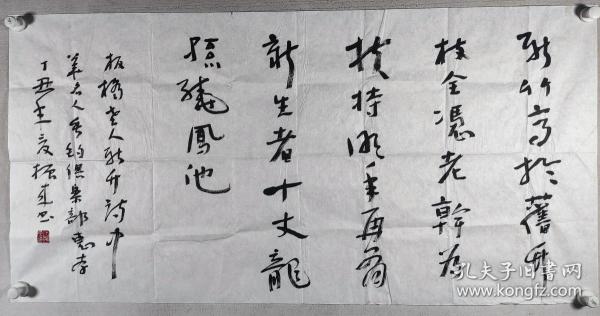 新竹高於舊竹
枝全憑老幹為
扶持明年再有
新生者十丈龍
孫繞鳳池
板橋人新竹詩中
華名人垂釣俱樂部惠存
丁丑年夏振書
孔夫子旧书网
www.kongfz.com